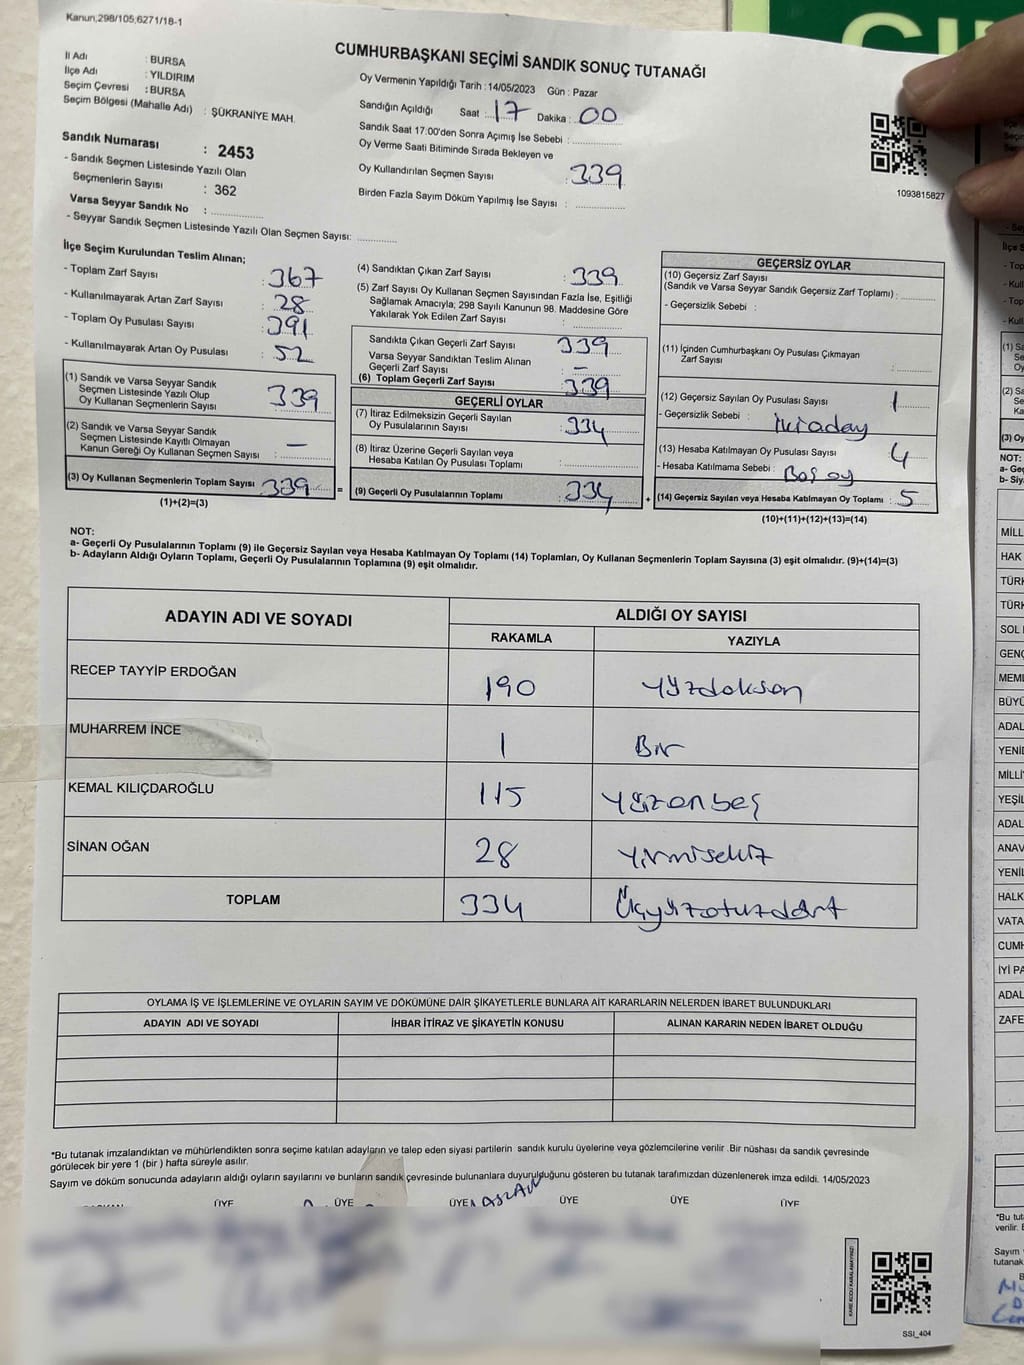 Kanun,298/105,6271/18-1
CUMHURBAŞKANI SEÇİMİ SANDIK SONUÇ TUTANAĞI
İl Adı : BURSA
İlçe Adı : YILDIRIM
Seçim Çevresi : BURSA
Seçim Bölgesi (Mahalle Adı) : ŞÜKRANİYE MAH.
Oy Vermenin Yapıldığı Tarih : 14/05/2023 Gün : Pazar
Sandığın Açıldığı Saat : 17 Dakika : 00
Sandık Saat 17:00'den Sonra Açımış İse Sebebi :
Oy Verme Saati Bitiminde Sırada Bekleyen ve
Oy Kullandırılan Seçmen Sayısı : 339
Birden Fazla Sayım Döküm Yapılmış İse Sayısı :
1093815827
Sandık Numarası : 2453
- Sandık Seçmen Listesinde Yazılı Olan
Seçmenlerin Sayısı : 362
Varsa Seyyar Sandık No :
- Seyyar Sandık Seçmen Listesinde Yazılı Olan Seçmen Sayısı:
İlçe Seçim Kurulundan Teslim Alınan;
- Toplam Zarf Sayısı : 367
- Kullanılmayarak Artan Zarf Sayısı : 28
- Toplam Oy Pusulası Sayısı : 391
- Kullanılmayarak Artan Oy Pusulası : 52
(1) Sandık ve Varsa Seyyar Sandık
Seçmen Listesinde Yazılı Olup
Oy Kullanan Seçmenlerin Sayısı : 339
(2) Sandık ve Varsa Seyyar Sandık
Seçmen Listesinde Kayıtlı Olmayan
Kanun Gereği Oy Kullanan Seçmen Sayısı : —
(3) Oy Kullanan Seçmenlerin Toplam Sayısı : 339
(1)+(2)=(3)
(4) Sandıktan Çıkan Zarf Sayısı : 339
(5) Zarf Sayısı Oy Kullanan Seçmen Sayısından Fazla İse, Eşitliği
Sağlamak Amacıyla; 298 Sayılı Kanunun 98. Maddesine Göre
Yakılarak Yok Edilen Zarf Sayısı :
Sandıkta Çıkan Geçerli Zarf Sayısı : 339
Varsa Seyyar Sandıktan Teslim Alınan
Geçerli Zarf Sayısı : —
(6) Toplam Geçerli Zarf Sayısı : 339
GEÇERLİ OYLAR
(7) İtiraz Edilmeksizin Geçerli Sayılan
Oy Pusulalarının Sayısı : 334
(8) İtiraz Üzerine Geçerli Sayılan veya
Hesaba Katılan Oy Pusulası Toplamı :
= (9) Geçerli Oy Pusulalarının Toplamı : 334
GEÇERSİZ OYLAR
(10) Geçersiz Zarf Sayısı
(Sandık ve Varsa Seyyar Sandık Geçersiz Zarf Toplamı) :
- Geçersizlik Sebebi :
(11) İçinden Cumhurbaşkanı Oy Pusulası Çıkmayan
Zarf Sayısı :
(12) Geçersiz Sayılan Oy Pusulası Sayısı : 1
- Geçersizlik Sebebi : İkiaday
(13) Hesaba Katılmayan Oy Pusulası Sayısı : 4
- Hesaba Katılmama Sebebi : Boş oy
+ (14) Geçersiz Sayılan veya Hesaba Katılmayan Oy Toplamı : 5
(10)+(11)+(12)+(13)=(14)
NOT:
a- Geçerli Oy Pusulalarının Toplamı (9) ile Geçersiz Sayılan veya Hesaba Katılmayan Oy Toplamı (14) Toplamları, Oy Kullanan Seçmenlerin Toplam Sayısına (3) eşit olmalıdır. (9)+(14)=(3)
b- Adayların Aldığı Oyların Toplamı, Geçerli Oy Pusulalarının Toplamına (9) eşit olmalıdır.
ADAYIN ADI VE SOYADI ALDIĞI OY SAYISI
RAKAMLA YAZIYLA
RECEP TAYYİP ERDOĞAN 190 yüzdoksan
MUHARREM İNCE 1 Bir
KEMAL KILIÇDAROĞLU 115 yüzonbeş
SİNAN OĞAN 28 yirmisekiz
TOPLAM 334 Üçyüzotuzdört
OYLAMA İŞ VE İŞLEMLERİNE VE OYLARIN SAYIM VE DÖKÜMÜNE DAİR ŞİKAYETLERLE BUNLARA AİT KARARLARIN NELERDEN İBARET BULUNDUKLARI
ADAYIN ADI VE SOYADI İHBAR İTİRAZ VE ŞİKAYETİN KONUSU ALINAN KARARIN NEDEN İBARET OLDUĞU
*Bu tutanak imzalandıktan ve mühürlendikten sonra seçime katılan adayların ve talep eden siyasi partilerin sandık kurulu üyelerine veya gözlemcilerine verilir. Bir nüshası da sandık çevresinde
görülecek bir yere 1 (bir ) hafta süreyle asılır.
Sayım ve döküm sonucunda adayların aldığı oyların sayılarını ve bunların sandık çevresinde bulunanlara duyurulduğunu gösteren bu tutanak tarafımızdan düzenlenerek imza edildi. 14/05/2023
ÜYE ÜYE ÜYE ÜYE ÜYE ÜYE
KARE KODU KARALAMAYINIZ!
SSI_404
MİLL
HAK
TÜRK
TÜRK
SOL
GENÇ
MEML
BÜYÜ
ADAL
YENİD
MİLLİ
YEŞİL
ADAL
ANAV
YENİL
HALK
VATA
CUMH
İYİ PA
ADAL
ZAFE
*Bu tut
verilir.
Sayım
tutanak